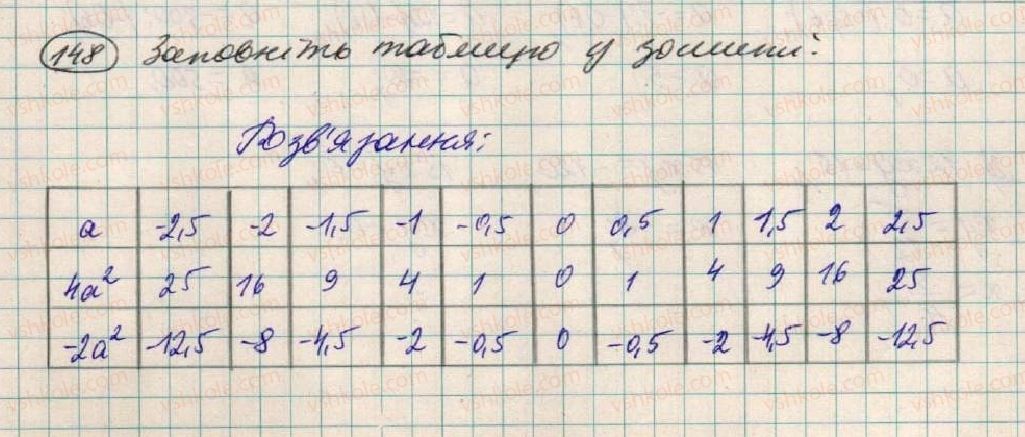 148 Заповніть таблицю у зошиті:
Розв'язання:
a -2,5 -2 -1,5 -1 -0,5 0 0,5 1 1,5 2 2,5
4a² 25 16 9 4 1 0 1 4 9 16 25
-2a² -12,5 -8 -4,5 -2 -0,5 0 -0,5 -2 -4,5 -8 -12,5